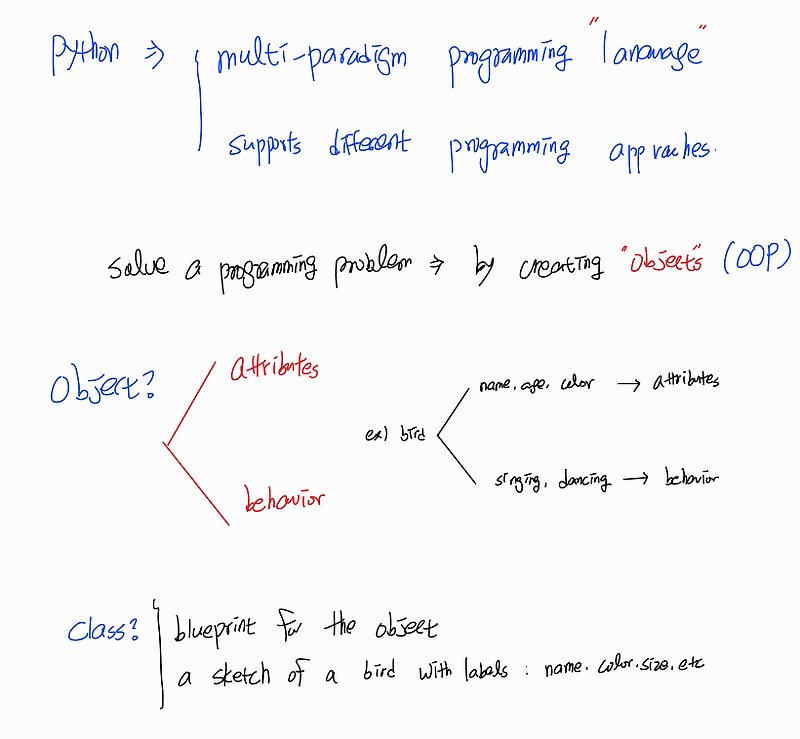 python ⇒ multi-paradigm programming "language"
supports different programming approaches.
solve a programming problem ⇒ by creating "objects" (OOP)
Object?
attributes
behavior
ex) bird
name, age, color → attributes
singing, dancing → behavior
Class?
blueprint for the object
a sketch of a bird with labels : name. color. size. etc